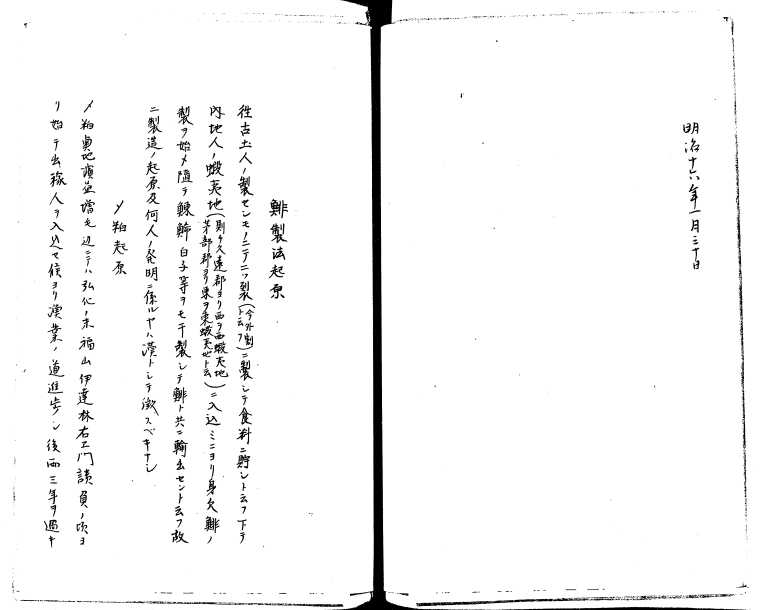 明治十六年一月三十日
鯡製法起原
往古土人ノ製セシモノニテ二ツ裂(今外割ト云フ)ニ製シテ食料ニ貯シト云フ下テ
内地人ノ蝦夷地(則チ久遠郡ヨリ西ヲ西蝦夷地茅部郡ヨリ東ヲ東蝦夷地ト云)ニ入込ミニヨリ身欠鯡ノ
製ヲ始メ随テ鰊鯑白子等ヲモ干製シテ鯡ト共ニ輸出セント云フ故
ニ製造ノ起原及何人ノ発明ニ係ルヤハ漠トシテ徴スベキナシ
〆粕起原
〆粕貞地濱益増毛辺ニテハ弘化ノ末福山伊達林右エ門請負ノ頃ヨ
リ始テ出稼人ヲ入込セ候ヨリ漁業ノ道進歩シ後両三年ヲ過キ